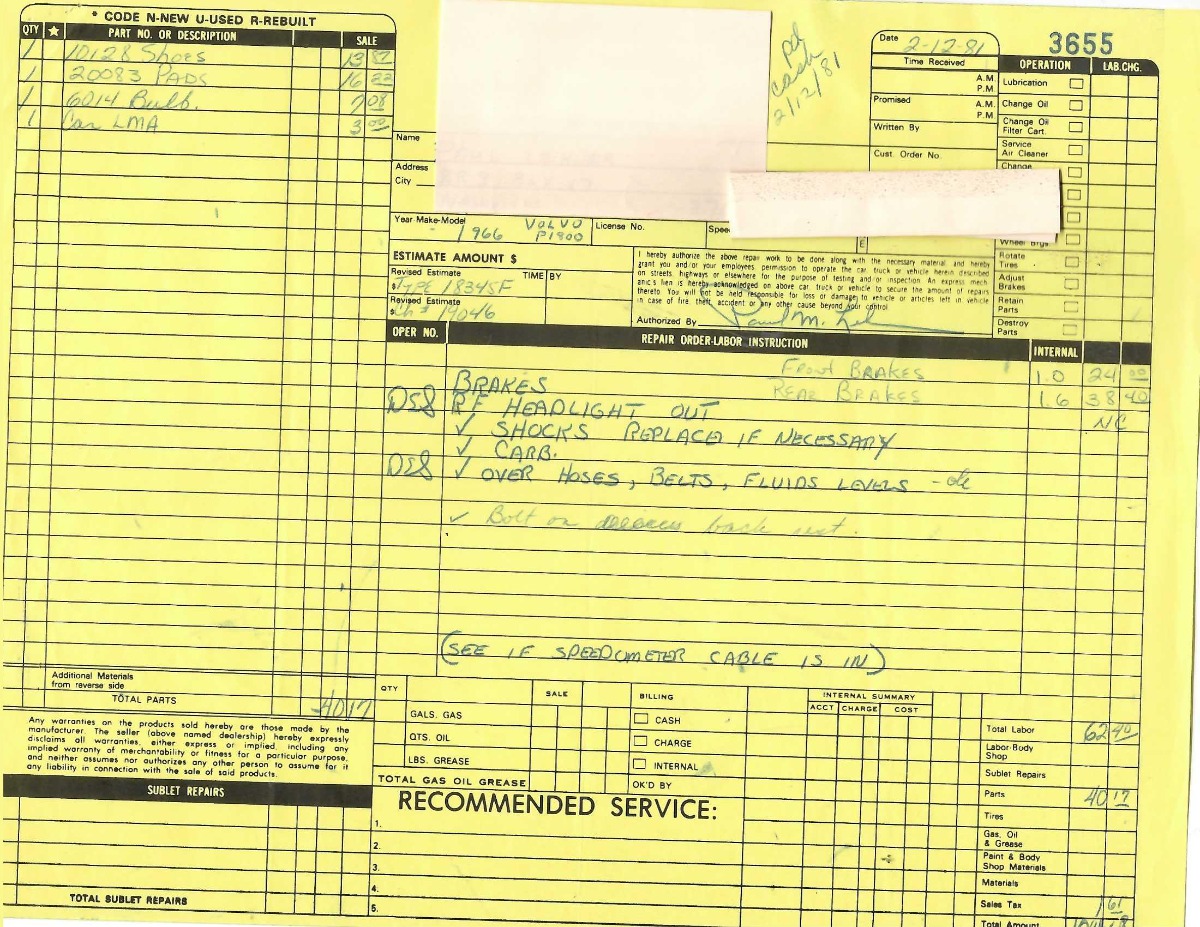 * CODE N-NEW U-USED R-REBUILT
QTY ★ PART NO. OR DESCRIPTION SALE
1 10128 Shoes
1 20083 PADS
1 6014 Bulb. 7 08
1 Car LMA 3 00
Additional Materials
from reverse side
TOTAL PARTS 40 17
Any warranties on the products sold hereby are those made by the
manufacturer. The seller (above named dealership) hereby expressly
disclaims all warranties, either express or implied, including any
implied warranty of merchantability or fitness for a particular purpose,
and neither assumes nor authorizes any other person to assume for it
any liability in connection with the sale of said products.
SUBLET REPAIRS
TOTAL SUBLET REPAIRS
pd
cash
2/12/81
Name
Address
City
Year Make-Model 1966 VOLVO P1800
License No.
ESTIMATE AMOUNT $
Revised Estimate TIME BY
$ TPE 18345F
Revised Estimate
$ Ch# 19046
I hereby authorize the above repair work to be done along with the necessary material, and hereby
grant you and/or your employees permission to operate the car, truck or vehicle herein described
on streets, highways or elsewhere for the purpose of testing and/or inspection. An express mech-
anic's lien is hereby acknowledged on above car, truck or vehicle to secure the amount of repairs
thereto. You will not be held responsible for loss or damage to vehicle or articles left in vehicle
in case of fire, theft, accident or any other cause beyond your control.
Authorized By Paul M.
Date 2-12-81
Time Received
A.M.
P.M.
Promised A.M.
P.M.
Written By
Cust. Order No.
3655
OPERATION LAB.CHG.
Lubrication
Change Oil
Change Oil
Filter Cart.
Service
Air Cleaner
Change
Wheel Brgs
Rotate
Tires
Adjust
Brakes
Retain
Parts
Destroy
Parts
OPER NO. REPAIR ORDER-LABOR INSTRUCTION INTERNAL
Front BRAKES 1.0 24 00
BRAKES REAR BRAKES 1.6 38 40
RF HEADLIGHT OUT NC
✓ SHOCKS REPLACE IF NECESSARY
✓ CARB.
✓ OVER HOSES, BELTS, FLUIDS LEVELS - ok
✓ Bolt on back
(SEE IF SPEEDOMETER CABLE IS IN)
QTY SALE
GALS. GAS
QTS. OIL
LBS. GREASE
TOTAL GAS OIL GREASE
BILLING
CASH
CHARGE
INTERNAL
OK'D BY
INTERNAL SUMMARY
ACCT CHARGE COST
RECOMMENDED SERVICE:
1.
2.
3.
4.
5.
Total Labor 62 40
Labor-Body
Shop
Sublet Repairs
Parts 40 17
Tires
Gas, Oil
& Grease
Paint & Body
Shop Materials
Materials
Sales Tax 1 61
Total Amount